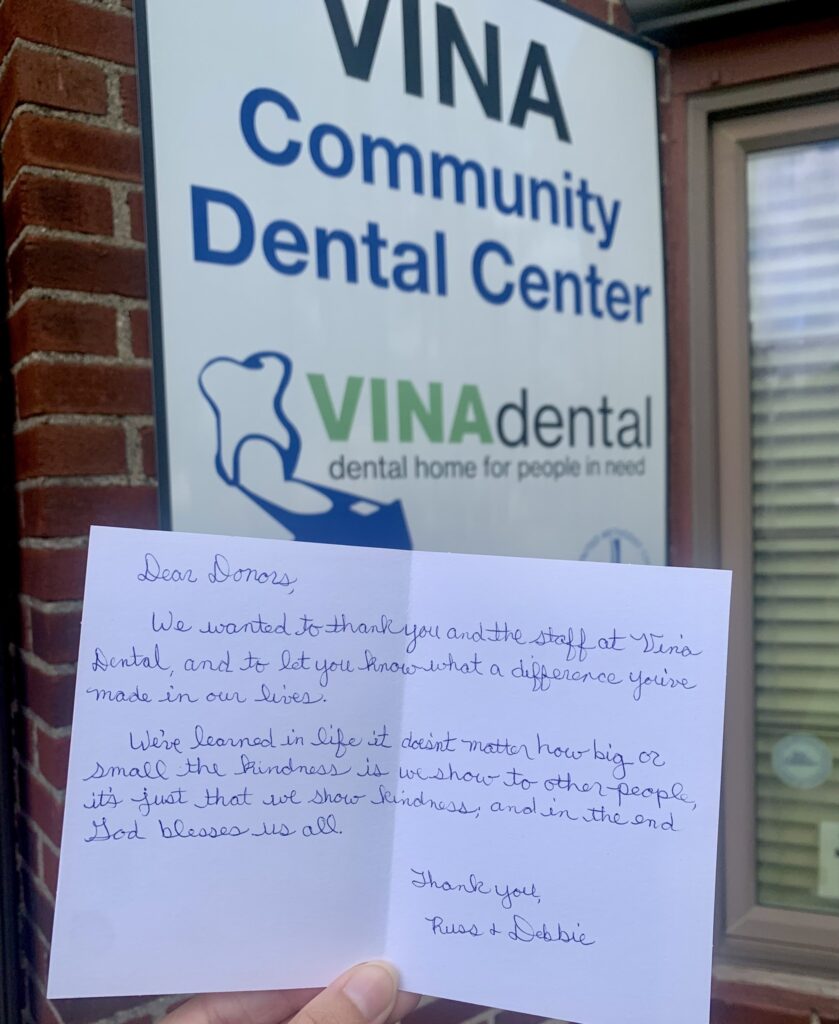 VINA
Community
Dental Center
VINAdental
dental home for people in need
Dear Donors,
We wanted to thank you and the staff at Vina
Dental, and to let you know what a difference you've
made in our lives.
We've learned in life it doesn't matter how big or
small the kindness is we show to other people,
it's just that we show kindness, and in the end
God blesses us all.
Thank you,
Russ & Debbie